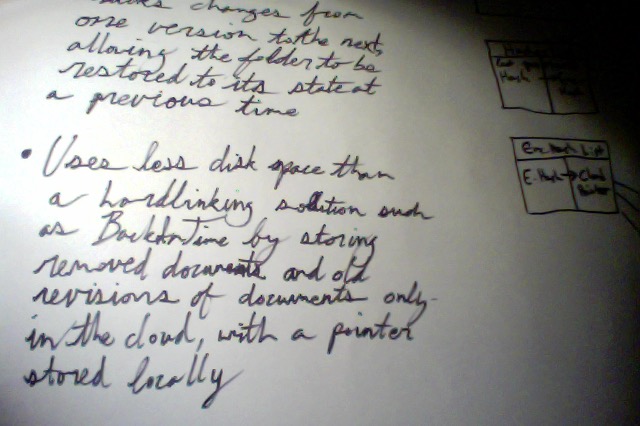 changes from
one version to the next,
allowing the folder to be
restored to its state at
a previous time
• Uses less disk space than
a hardlinking solution such
as BackInTime by storing
removed documents and old
revisions of documents only
in the cloud, with a pointer
stored locally
Hash
Enc Hash List
E-Hash → Cloud
Pointer